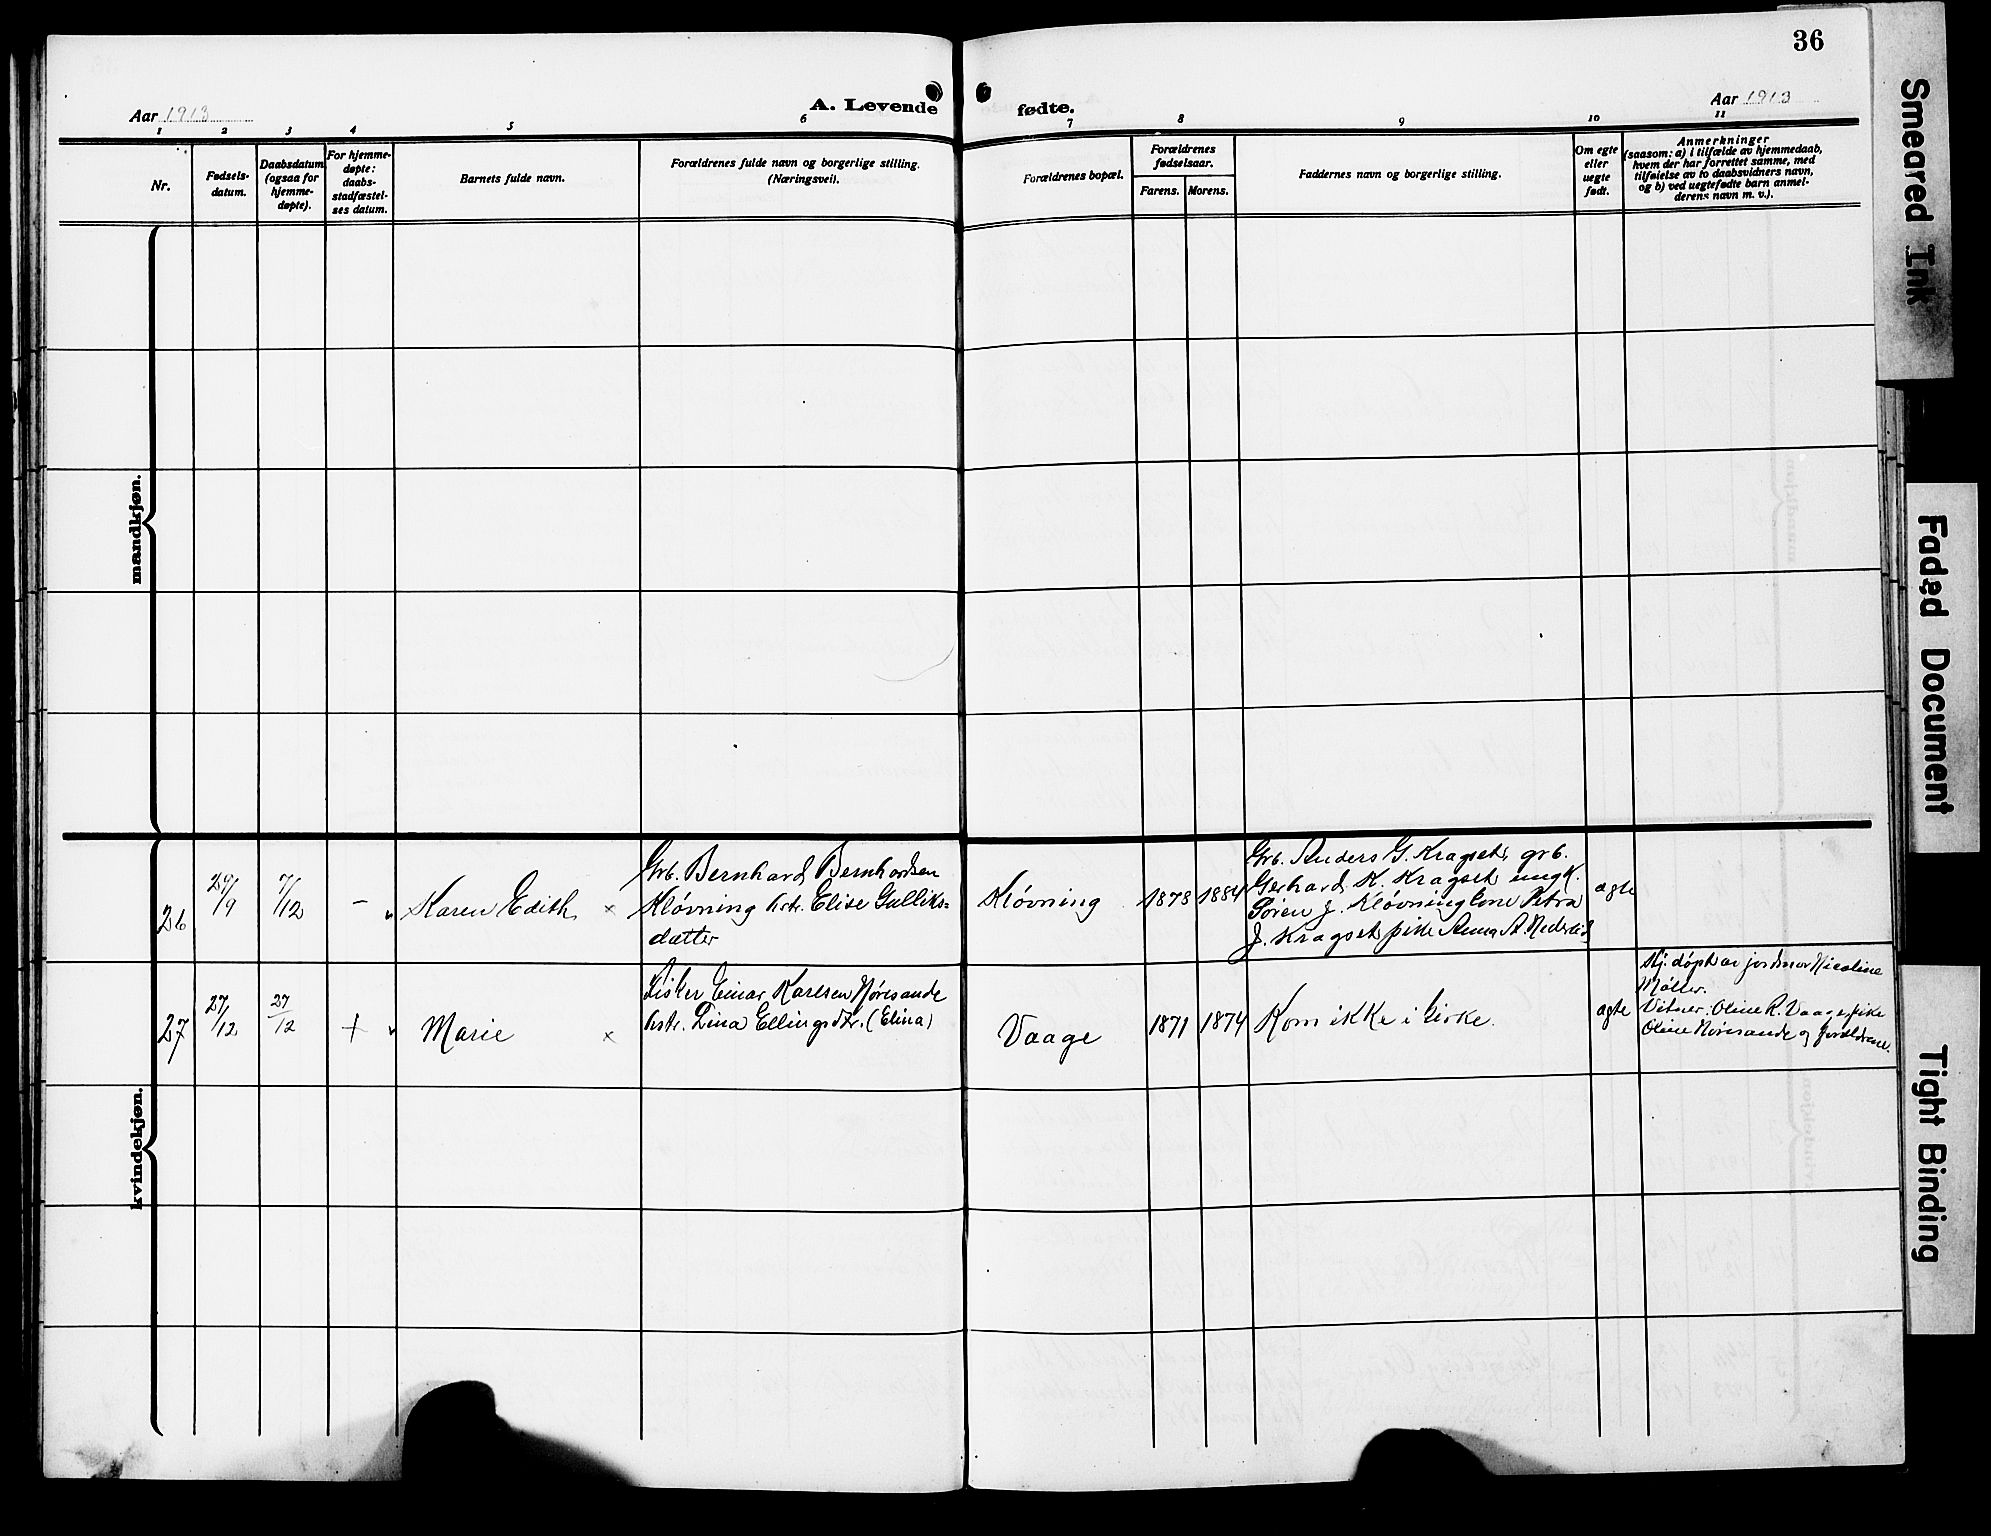 36
Aar 1913
A. Levende fødte.
Aar 1913
1 2 3 4 5 6 7 8 9 10 11
Nr.
Fødsels-
datum.
Daabsdatum
(ogsaa for
hjemme-
døpte).
For hjemme-
døpte:
daabs-
stadfæstel-
ses datum.
Barnets fulde navn.
Forældrenes fulde navn og borgerlige stilling.
(Næringsvei).
Forældrenes bopæl.
Forældrenes
fødselsaar.
Farens. Morens.
Faddernes navn og borgerlige stilling.
Om egte
eller
uegte
født.
Anmerkninger
(saasom: a) i tilfælde av hjemmedaab,
hvem der har forrettet samme, med
tilføielse av to daabsvidners navn,
og b) ved uegtefødte barn anmel-
derens navn m. v.).
mandkjøn.
kvindekjøn.
26
29/9
7/12
-
Karen Edith
Grb. Bernhard Bernhardsen
Kløvning hstr. Elise Gulliks=
datter
Kløvning
1873
1884
Grb. Anders G. Kragset, grb.
Gerhard K. Kragset ungk.
Søren J. Kløvning kone Petra
J. Kragset pike Anna A.
ægte
27
27/12
27/12
+
Marie
Fisker Einar Karlsen Nøresande
hstr. Lina Ellingsdtr. (Elina)
Vaage
1871
1874
Kom ikke i kirke.
ægte
Hj. døpt av jordmor Nicoline
Møller.
Vitner: Oline R. Vaage, pike
Oline Nøresande og forældrene.
Smeared Ink
Faded Document
Tight Binding